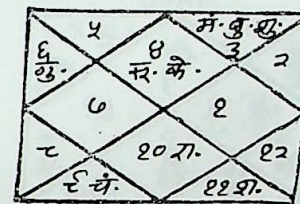 ५ मं. बु. शु.
६ ४ ३ २
गु. र. के.
७ १
८ १० रा. १२
९ चं. ११ श.